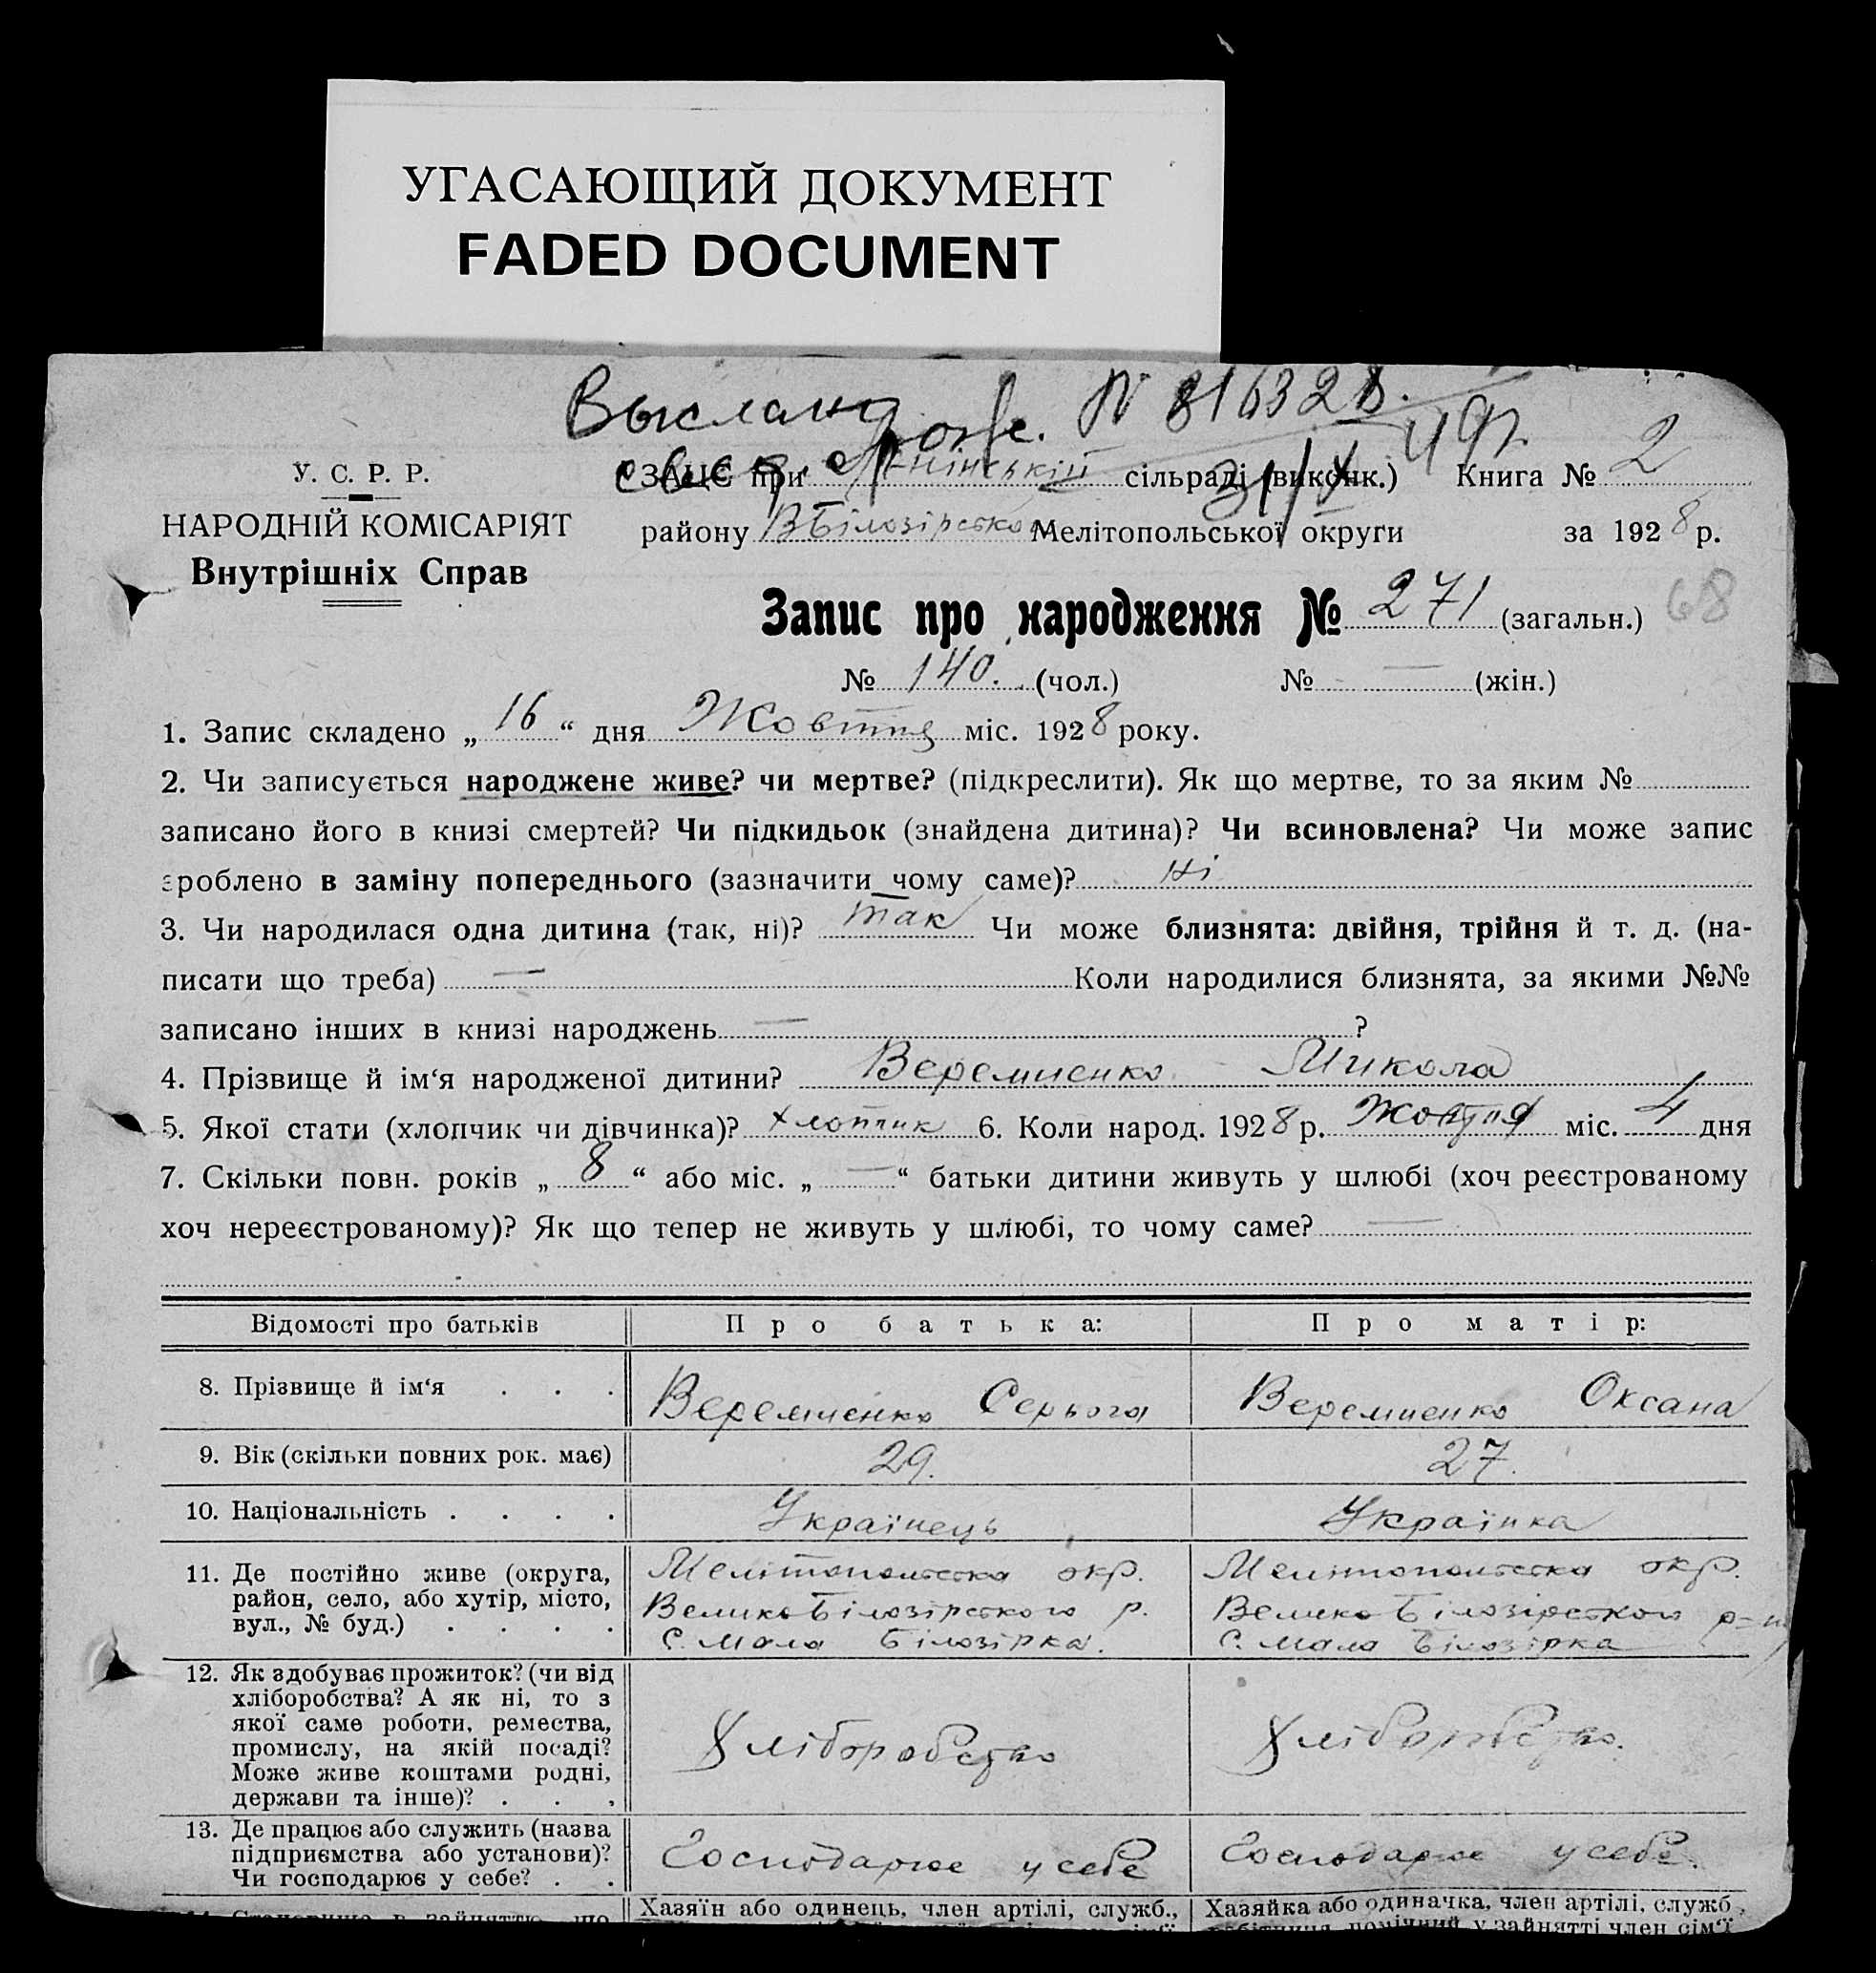 УГАСАЮЩИЙ ДОКУМЕНТ
FADED DOCUMENT
Выслано
N 816328.
49г.
У. С. Р. Р.
НАРОДНІЙ КОМІСАРІЯТ
Внутрішніх Справ
ЗАЦС при сільраді (виконк.) Книга № 2
району ВБілозірсько Мелітопольської округи за 1928 р.
Запис про народження № 271 (загальн.)
68
№ 140. (чол.) № — (жін.)
1. Запис складено „ 16 “ дня Жовтня міс. 1928 року.
2. Чи записується народжене живе? чи мертве? (підкреслити). Як що мертве, то за яким №
записано його в книзі смертей? Чи підкидьок (знайдена дитина)? Чи всиновлена? Чи може запис
зроблено в заміну попереднього (зазначити чому саме)? ні
3. Чи народилася одна дитина (так, ні)? так Чи може близнята: двійня, трійня й т. д. (на-
писати що треба) — Коли народилися близнята, за якими №№
записано інших в книзі народжень — ?
4. Прізвище й ім‘я народженої дитини? Веремиенко Микола
5. Якої стати (хлопчик чи дівчинка)? хлопчик 6. Коли народ. 1928 р. Жовтня міс. 4 дня
7. Скільки повн. років „ 8 “ або міс. „ — “ батьки дитини живуть у шлюбі (хоч реєстрованому
хоч нереєстрованому)? Як що тепер не живуть у шлюбі, то чому саме? —
Відомості про батьків Про батька: Про матір:
8. Прізвище й ім‘я . . . Веремиенко Серьога Веремиенко Оксана
9. Вік (скільки повних рок. має) 29. 27.
10. Національність . . . . Українець Українка
11. Де постійно живе (округа, Мелітопольська окр. Мелітопольська окр.
район, село, або хутір, місто, Велико Білозірського р. Велико Білозірского р-ну
вул., № буд.) . . . . с. Мала Білозірка. с. Мала Білозірка
12. Як здобуває прожиток? (чи від
хліборобства? А як ні, то з
якої саме роботи, ремества,
промислу, на якій посаді? Хліборобство Хліборобство.
Може живе коштами родні,
держави та інше)? . . .
13. Де працює або служить (назва
підприємства або установи)? Господарює у себе Господарює у себе.
Чи господарює у себе? . .
Хазяїн або одинець, член артілі, служб., Хазяйка або одиначка, член артілі, служб.,
помічний у зайнятті член сім‘ї